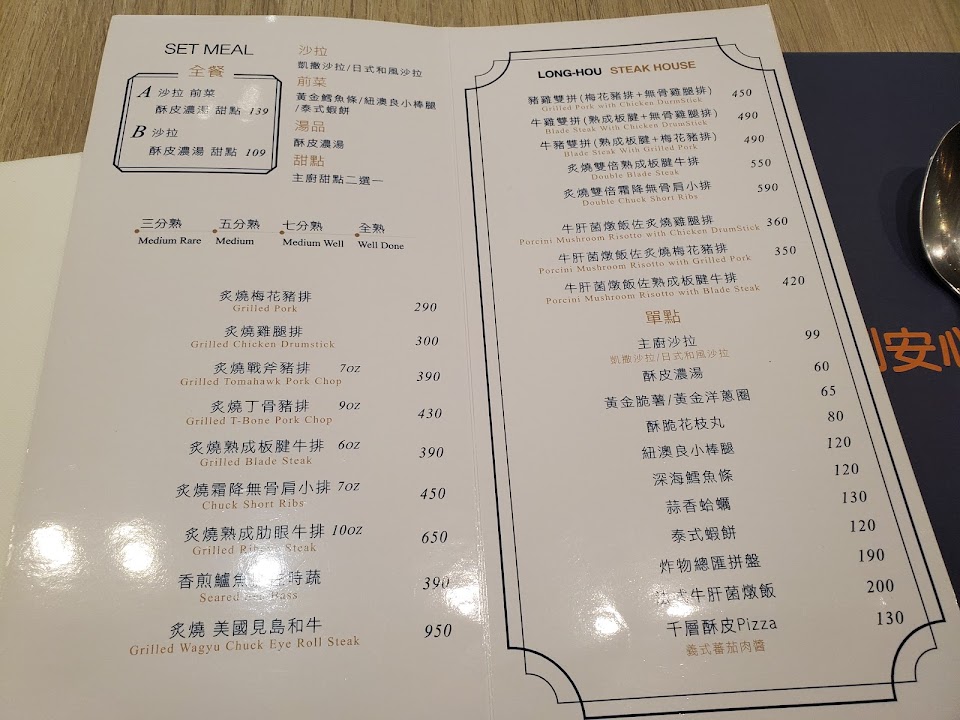 SET MEAL
全餐
A 沙拉 前菜
酥皮濃湯 甜點 139
B 沙拉
酥皮濃湯 甜點 109
沙拉
凱撒沙拉/日式和風沙拉
前菜
黃金鱈魚條/紐澳良小棒腿
/泰式蝦餅
湯品
酥皮濃湯
甜點
主廚甜點二選一
三分熟 五分熟 七分熟 全熟
Medium Rare Medium Medium Well Well Done
炙燒梅花豬排 290
Grilled Pork
炙燒雞腿排 300
Grilled Chicken Drumstick
炙燒戰斧豬排 7oz 390
Grilled Tomahawk Pork Chop
炙燒丁骨豬排 9oz 430
Grilled T-Bone Pork Chop
炙燒熟成板腱牛排 6oz 390
Grilled Blade Steak
炙燒霜降無骨肩小排 7oz 450
Chuck Short Ribs
炙燒熟成肋眼牛排 10oz 650
Grilled Steak
香煎鱸魚 時蔬 390
Seared Bass
炙燒 美國見島和牛 950
Grilled Wagyu Chuck Eye Roll Steak
LONG-HOU STEAK HOUSE
豬雞雙拼(梅花豬排+無骨雞腿排) 450
Grilled Pork with Chicken DurmStick
牛雞雙拼(熟成板腱+無骨雞腿排) 490
Blade Steak With Chicken DrumStick
牛豬雙拼(熟成板腱+梅花豬排) 490
Blade Steak With Grilled Pork
炙燒雙倍熟成板腱牛排 550
Double Blade Steak
炙燒雙倍霜降無骨肩小排 590
Double Chuck Short Ribs
牛肝菌燉飯佐炙燒雞腿排 360
Porcini Mushroom Risotto with Chicken DrumStick
牛肝菌燉飯佐炙燒梅花豬排 350
Porcini Mushroom Risotto with Grilled Pork
牛肝菌燉飯佐熟成板腱牛排 420
Porcini Mushroom Risotto with Blade Steak
單點
主廚沙拉 99
凱撒沙拉/日式和風沙拉
酥皮濃湯 60
黃金脆薯/黃金洋蔥圈 65
酥脆花枝丸 80
紐澳良小棒腿 120
深海鱈魚條 120
蒜香蛤蠣 130
泰式蝦餅 120
炸物總匯拼盤 190
法式牛肝菌燉飯 200
千層酥皮Pizza 130
義式蕃茄肉醬
安心